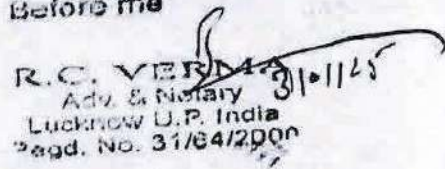 Before me
R.C. VERMA
Adv. & Notary
Lucknow U.P. India
Regd. No. 31/64/2000